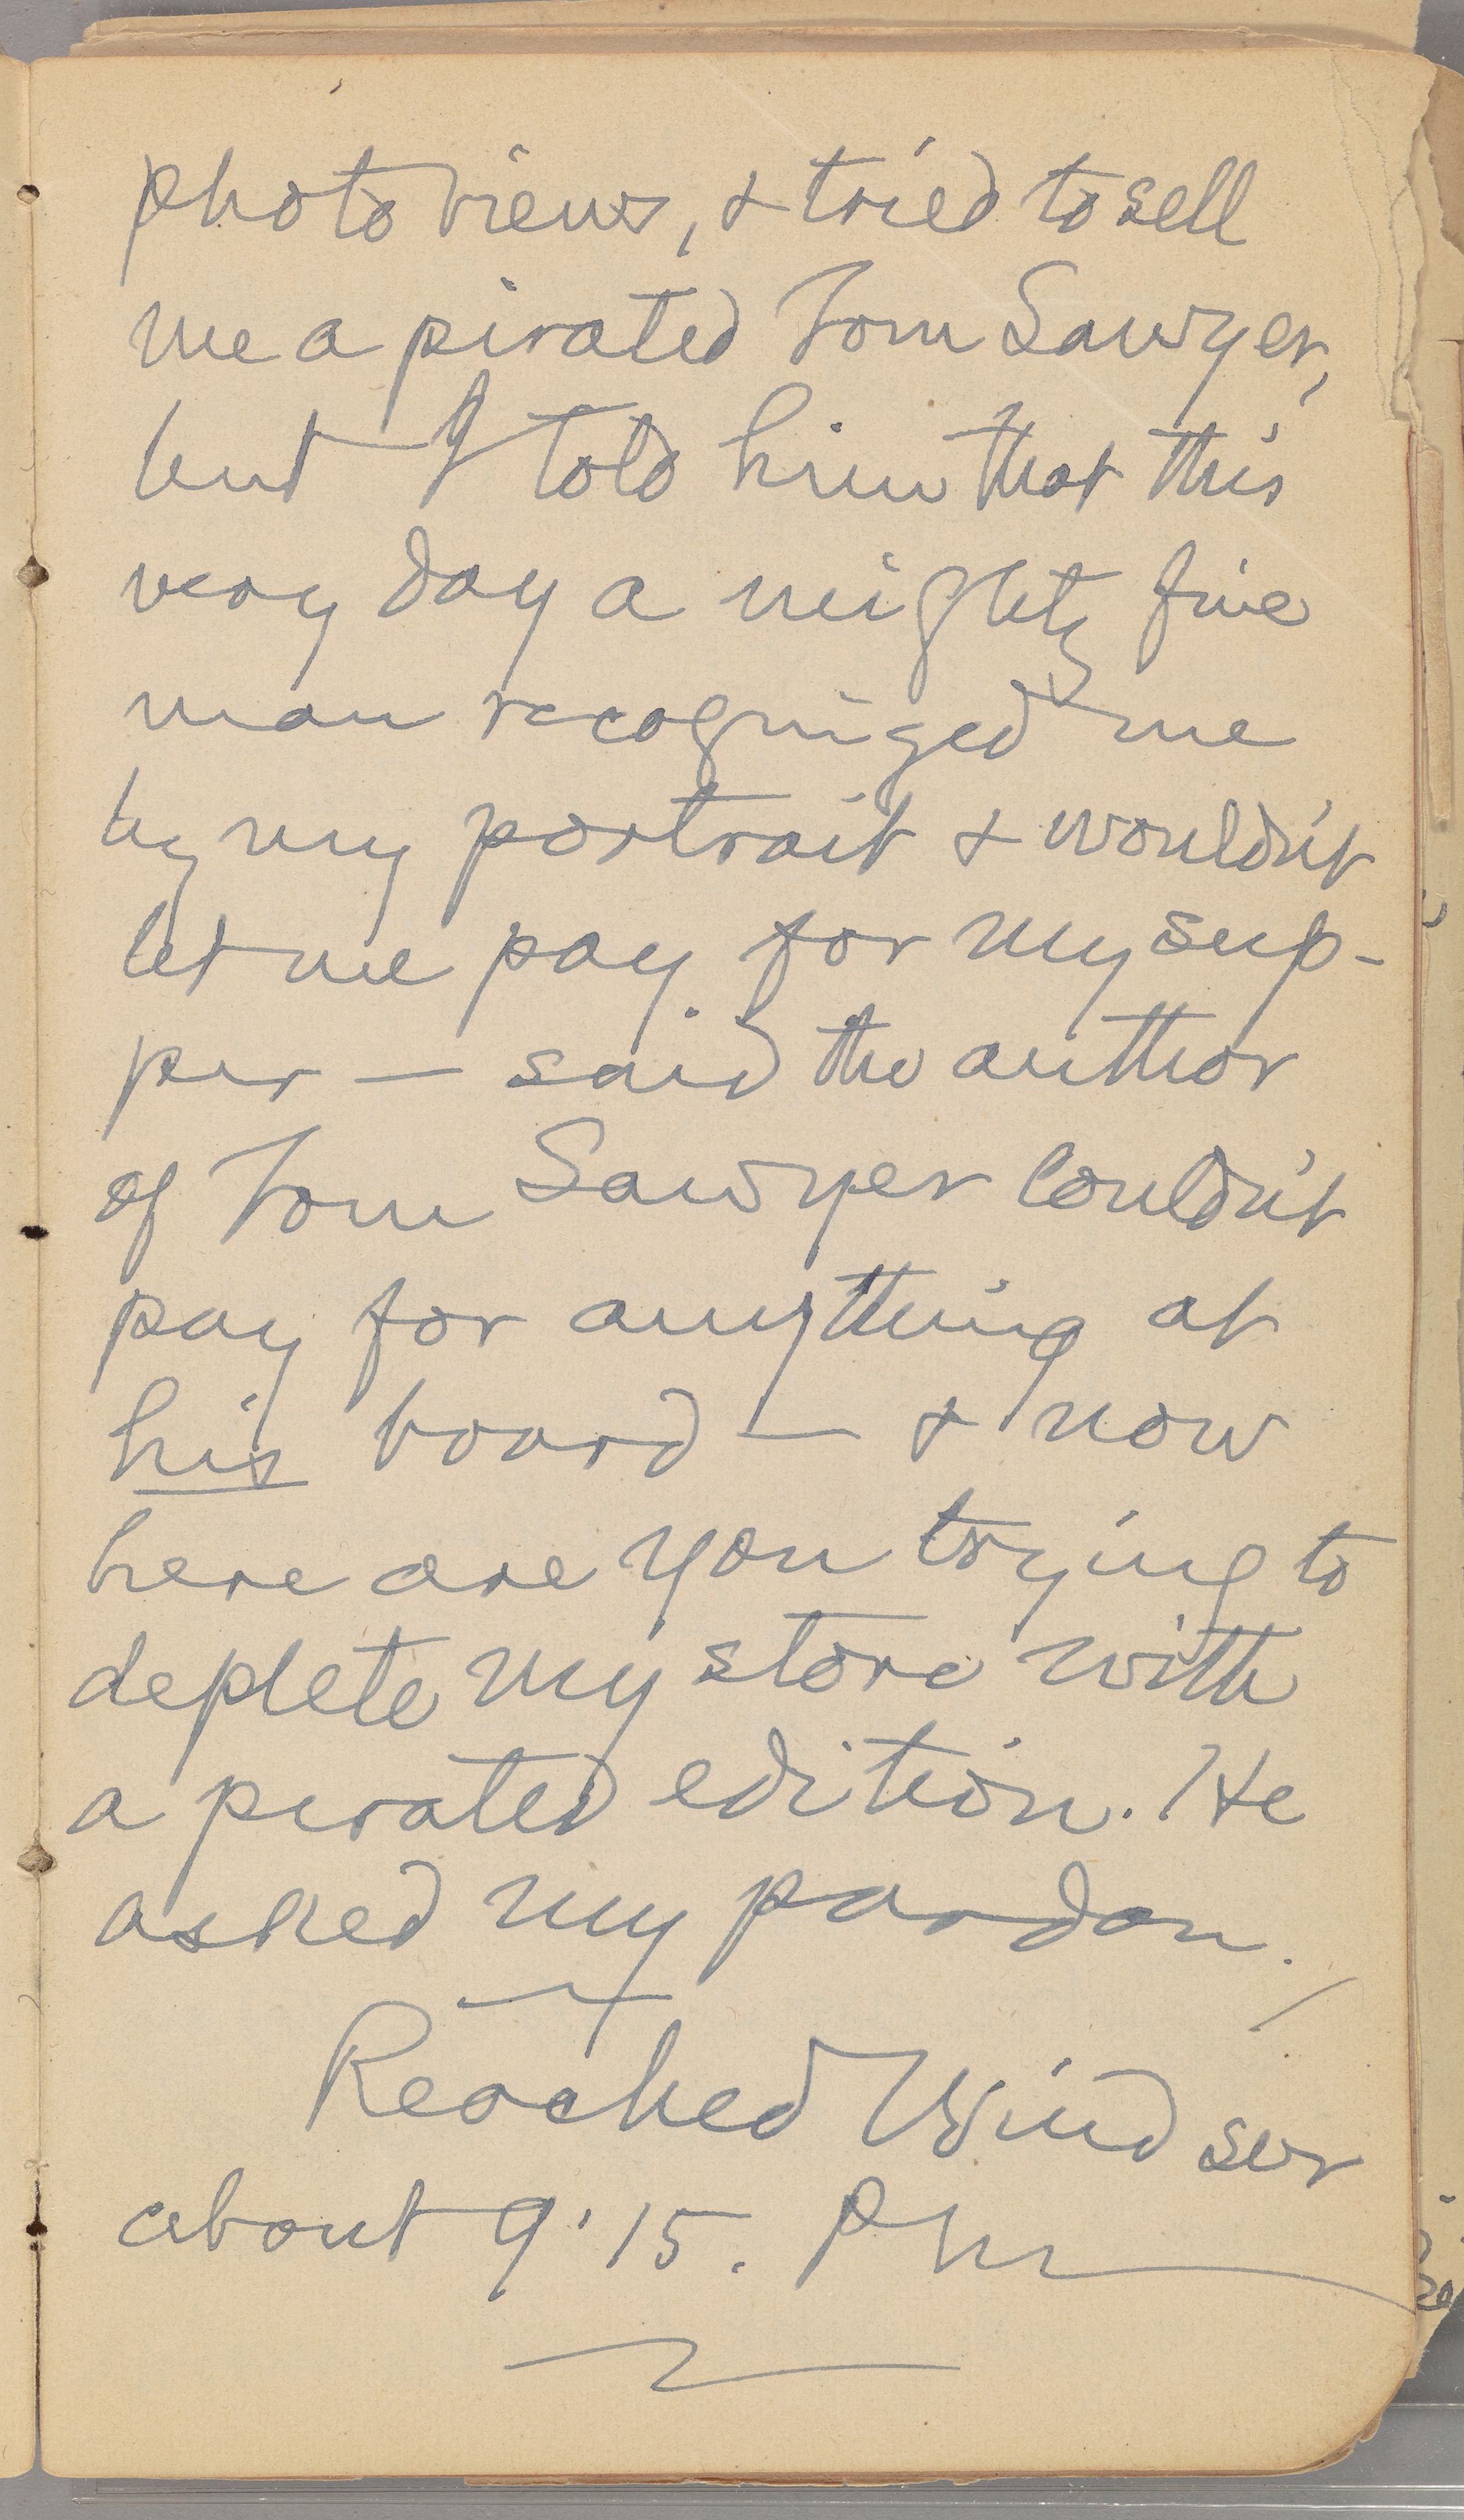 photo views, & tried to sell
me a pirated Tom Sawyer,
but I told him that this
very day a mighty fine
man recognized me
by my portrait & wouldn't
let me pay for my sup-
per — said the author
of Tom Sawyer couldn't
pay for anything at
his board — & now
here are you trying to
deplete my store with
a pirated edition. He
asked my pardon.
Reached Windsor
about 9.15. PM